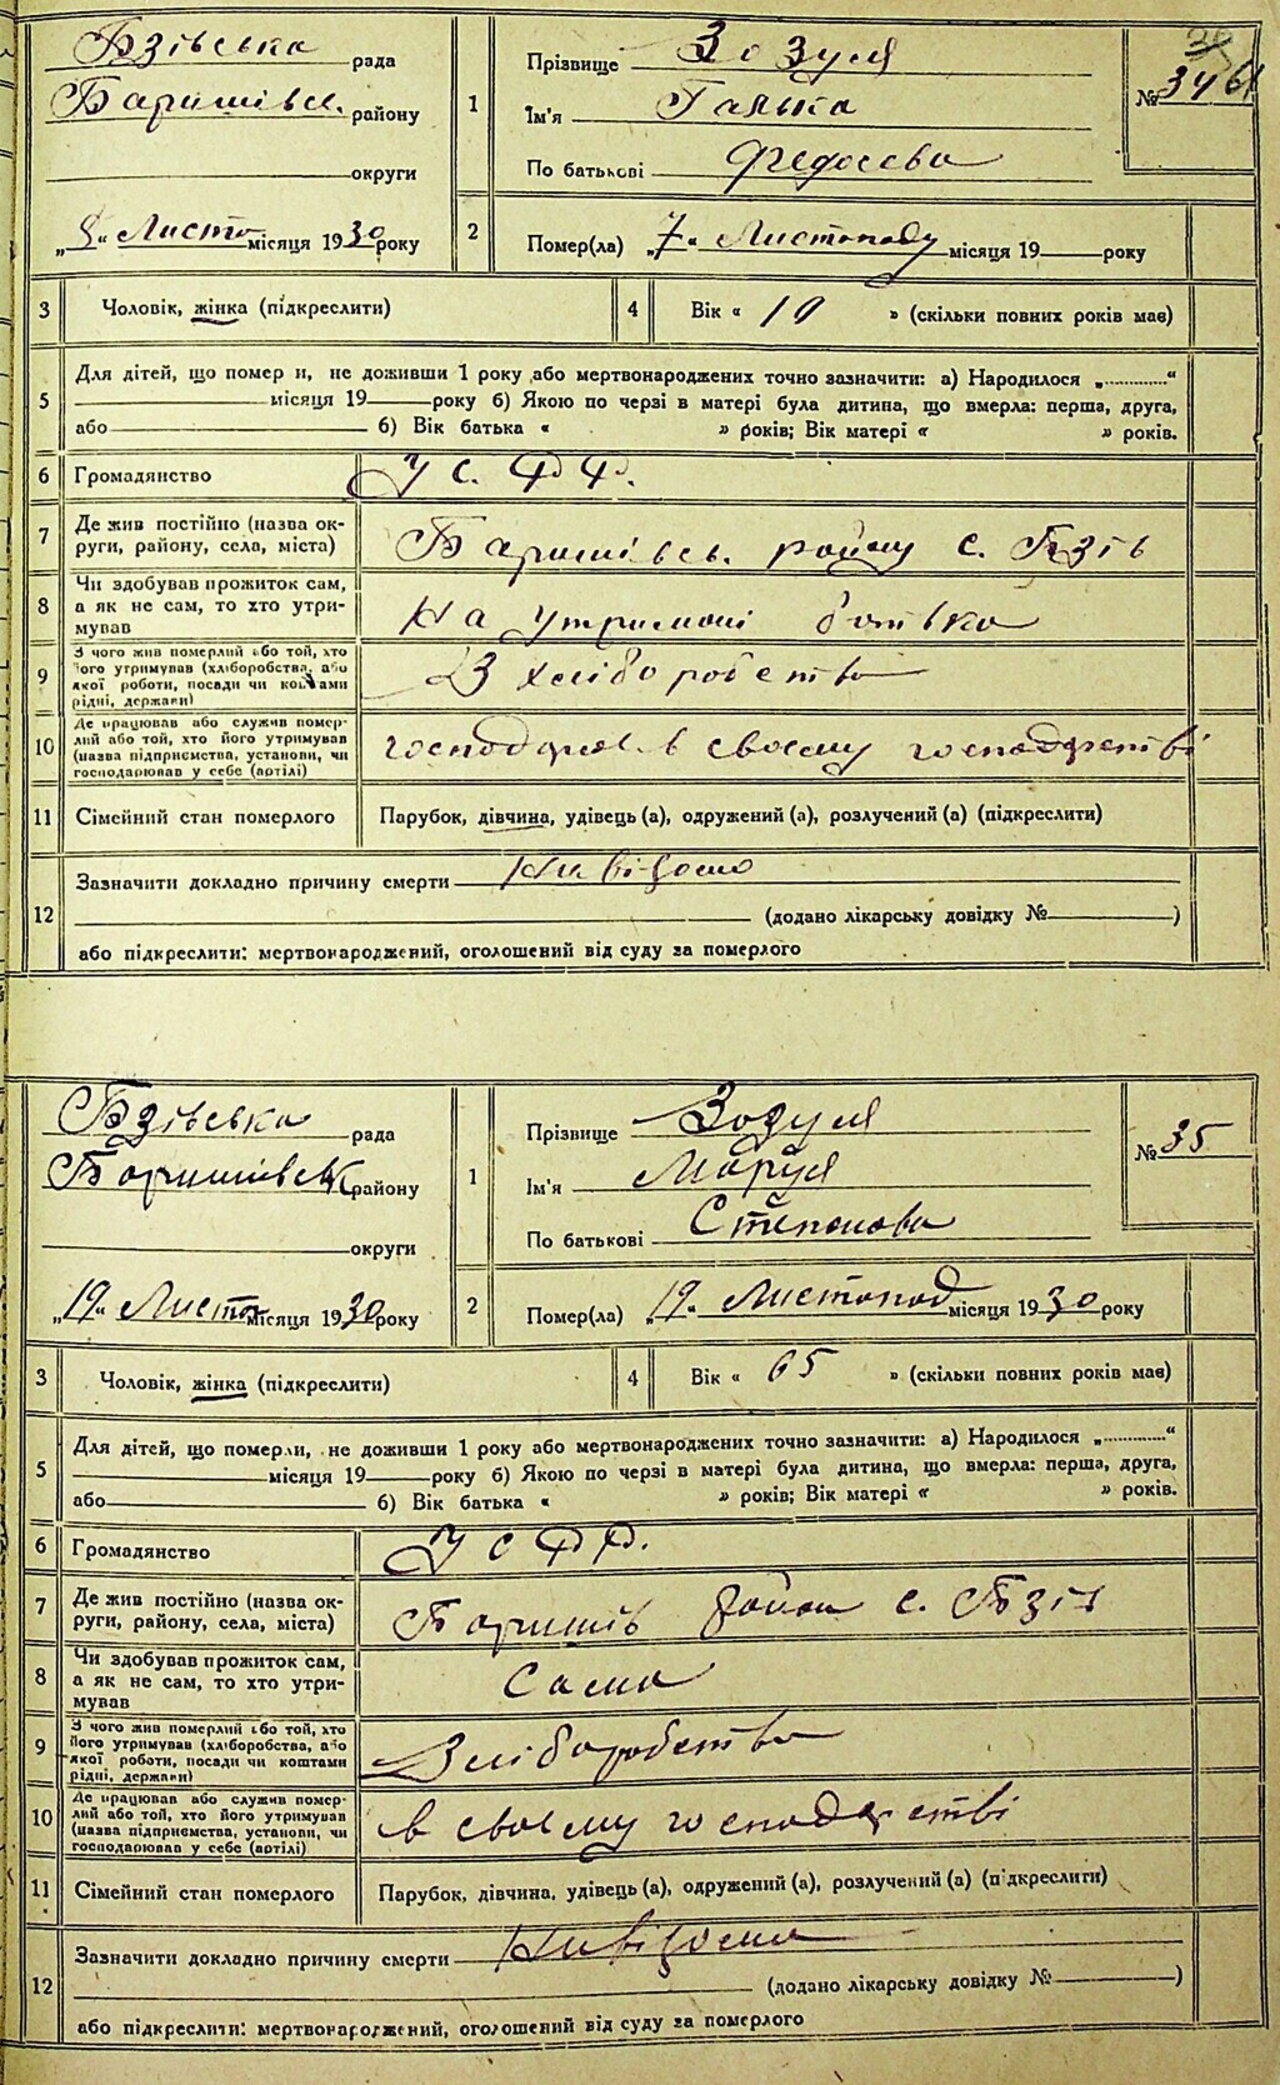 Бзівська рада
Баришівс. району
округи
„8“ Листо місяця 1930 року
1
Прізвище Зозуля
Ім'я Галька
По батькові Федосева
№ 34
61
2
Помер(ла) „7“ Листопаду місяця 19 року
3 Чоловік, жінка (підкреслити)
4 Вік « » (скільки повних років має)
5 Для дітей, що померли, не доживши 1 року або мертвонароджених точно зазначити: а) Народилося „............“
місяця 19 року б) Якою по черзі в матері була дитина, що вмерла: перша, друга,
або б) Вік батька « » років; Вік матері « » років.
6 Громадянство У С. Р Р.
7 Де жив постійно (назва округи, району, села, міста) Баришівсь. району с. Бзів
8 Чи здобував прожиток сам, а як не сам, то хто утримував На утримані батька
9 З чого жив померлий або той, хто його утримував (хліборобства, або якої роботи, посади чи коштами рідні, держави) З хліборобства
10 Де працював або служив померлий або той, хто його утримував (назва підприємства, установи, чи господарював у себе (артілі) господарює в своєму господарстві
11 Сімейний стан померлого Парубок, дівчина, удівець (а), одружений (а), розлучений (а) (підкреслити)
12 Зазначити докладно причину смерти Нивідомо
(додано лікарську довідку № )
або підкреслити: мертвонароджений, оголошений від суду за померлого
Бзівська рада
Баришівськ району
округи
„19“ Листо місяця 1930 року
1
Прізвище Зозуля
Ім'я Маруся
По батькові Степанова
№ 35
2
Помер(ла) „19“ Листопад місяця 1930 року
3 Чоловік, жінка (підкреслити)
4 Вік « 65 » (скільки повних років має)
5 Для дітей, що померли, не доживши 1 року або мертвонароджених точно зазначити: а) Народилося „............“
місяця 19 року б) Якою по черзі в матері була дитина, що вмерла: перша, друга,
або б) Вік батька « » років; Вік матері « » років.
6 Громадянство У С Р Р.
7 Де жив постійно (назва округи, району, села, міста) Баришів район с. Бзів
8 Чи здобував прожиток сам, а як не сам, то хто утримував Сама
9 З чого жив померлий або той, хто його утримував (хліборобства, або якої роботи, посади чи коштами рідні, держави)
10 Де працював або служив померлий або той, хто його утримував (назва підприємства, установи, чи господарював у себе (артілі) в своєму господарстві
11 Сімейний стан померлого Парубок, дівчина, удівець (а), одружений (а), розлучений (а) (підкреслити)
12 Зазначити докладно причину смерти Нивідомо
(додано лікарську довідку № )
або підкреслити: мертвонароджений, оголошений від суду за померлого